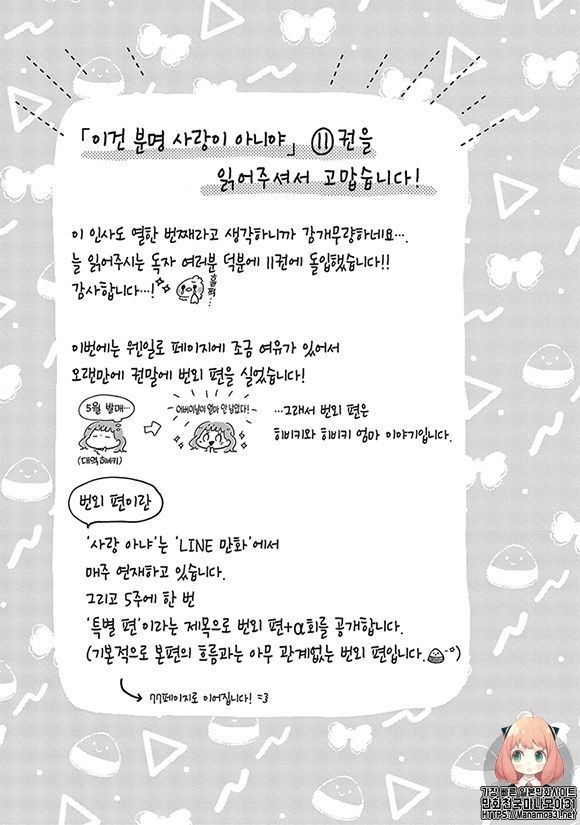 「이건 분명 사랑이 아니야」 ⑪권을
읽어주셔서 고맙습니다!
이 인사도 열한 번째라고 생각하니까 감개무량하네요….
늘 읽어주시는 독자 여러분 덕분에 11권에 돌입했습니다!!
감사합니다…!
흐흑…
이번에는 웬일로 페이지에 조금 여유가 있어서
오랜만에 권말에 번외 편을 실었습니다!
5월 발매…
(대역 히비키)
어버이날이 얼마 안 남았다!
…그래서 번외 편은
히비키와 히비키 엄마 이야기입니다.
번외 편이란
'사랑 아냐'는 'LINE 만화'에서
매주 연재하고 있습니다.
그리고 5주에 한 번
'특별 편'이라는 제목으로 번외 편+α회를 공개합니다.
(기본적으로 본편의 흐름과는 아무 관계없는 번외 편입니다.)
77페이지로 이어집니다! =3
가장 빠른 일본만화사이트
만화천국마나모아31
HTTPS://Manamoa31.net